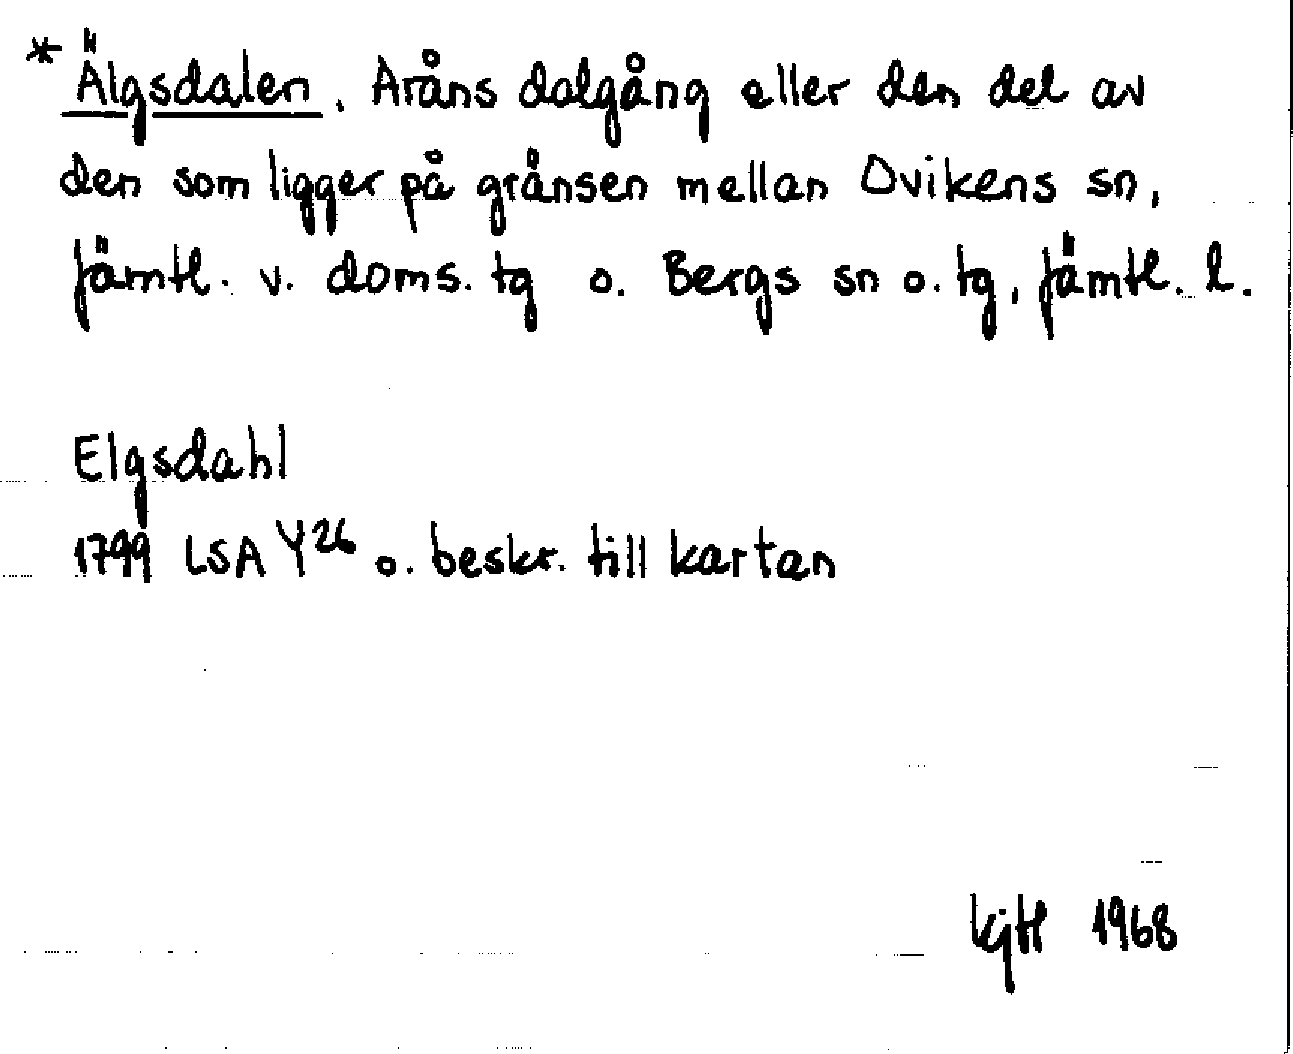 * Älgsdalen. Aråns dalgång eller den del av
den som ligger på gränsen mellan Ovikens sn,
Jämtl. v. doms. tg o. Bergs sn o. tg, Jämtl. l.
Elgsdahl
1799 LSA Y26 o. beskr. till kartan
1968